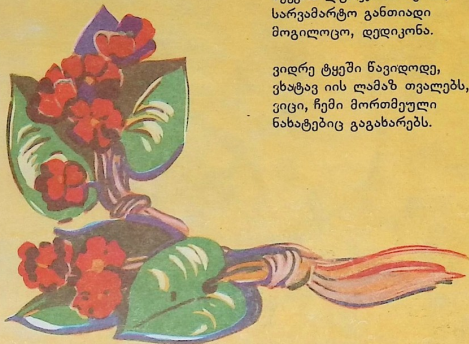 სარვამარტო განთიადი
მოგილოცო, დედიკონა.
ვიდრე ტყეში წავიდოდე,
ვხატავ იის ლამაზ თვალებს,
ვიცი, ჩემი მორთმეული
ნახატებიც გაგახარებს.